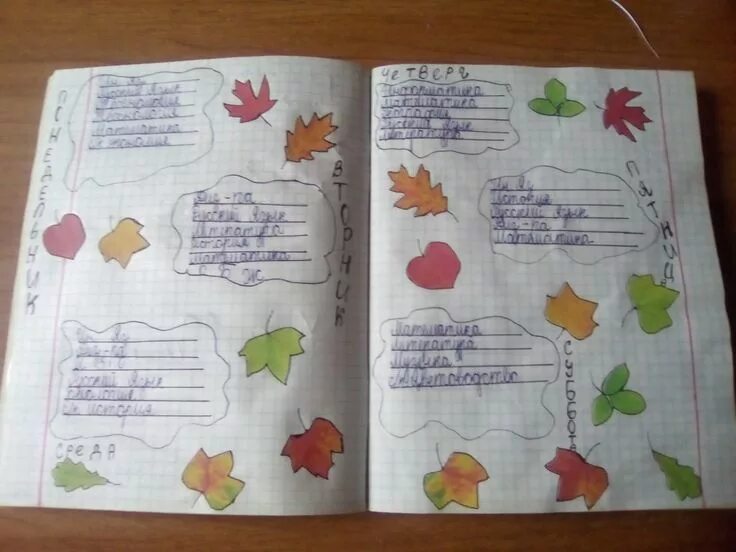 ПОНЕДЕЛЬНИК
Ин. Яз
Русский Язык
Технология
Технология
Математика
ВТОРНИК
Физ-ра
Русский Язык
Литература
История
Математика
О Б Ж
СРЕДА
Ин. Яз
Физ-ра
Русский Язык
Биология
История
ЧЕТВЕРГ
Информатика
Математика
География
Русский Язык
Литература
ПЯТНИЦ
Ин. Яз
История
Русский Язык
Физ-ра
Математика
СУББОТА
Математика
Литература
Музыка